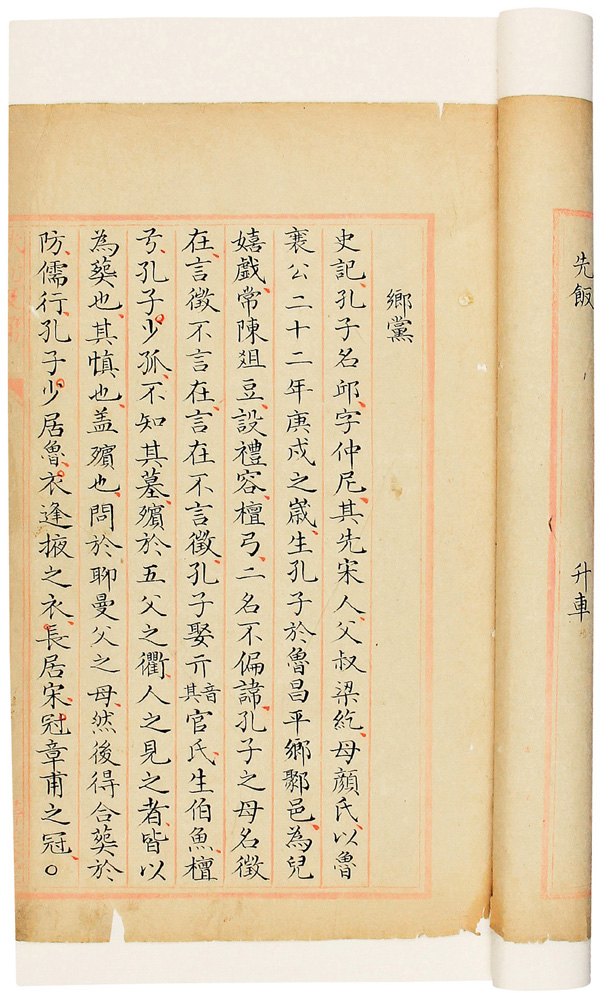 先飯
升車
鄉黨
史記孔子名邱字仲尼其先宋人父叔梁紇母顏氏以魯
襄公二十二年庚戍之歲生孔子於魯昌平鄉鄹邑為兒
嬉戲常陳俎豆設禮容檀弓二名不偏諱孔子之母名徵
在言徵不言在言在不言徵孔子娶亓音其官氏生伯魚檀
弓孔子少孤不知其墓殯於五父之衢人之見之者皆以
為葬也其慎也盖殯也問於聊曼父之母然後得合葬於
防儒行孔子少居魯衣逢掖之衣長居宋冠章甫之冠○